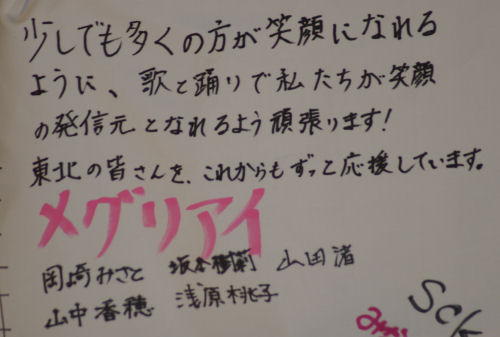 少しでも多くの方が笑顔になれる
ように、歌と踊りで私たちが笑顔
の発信元となれるよう頑張ります!
東北の皆さんを、これからもずっと応援しています。
メグリアイ
岡崎みさと 坂本樹莉 山田渚
山中香穂 浅原桃子
Sck